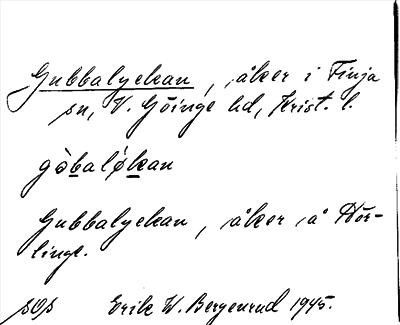 Gubbalyckan, åker i Finja
sn, V. Göinge hd, Krist. l.
gòbaløkan
Gubbalyckan, åker å Hör-
linge.
Erik W. Bergenrud 1945.